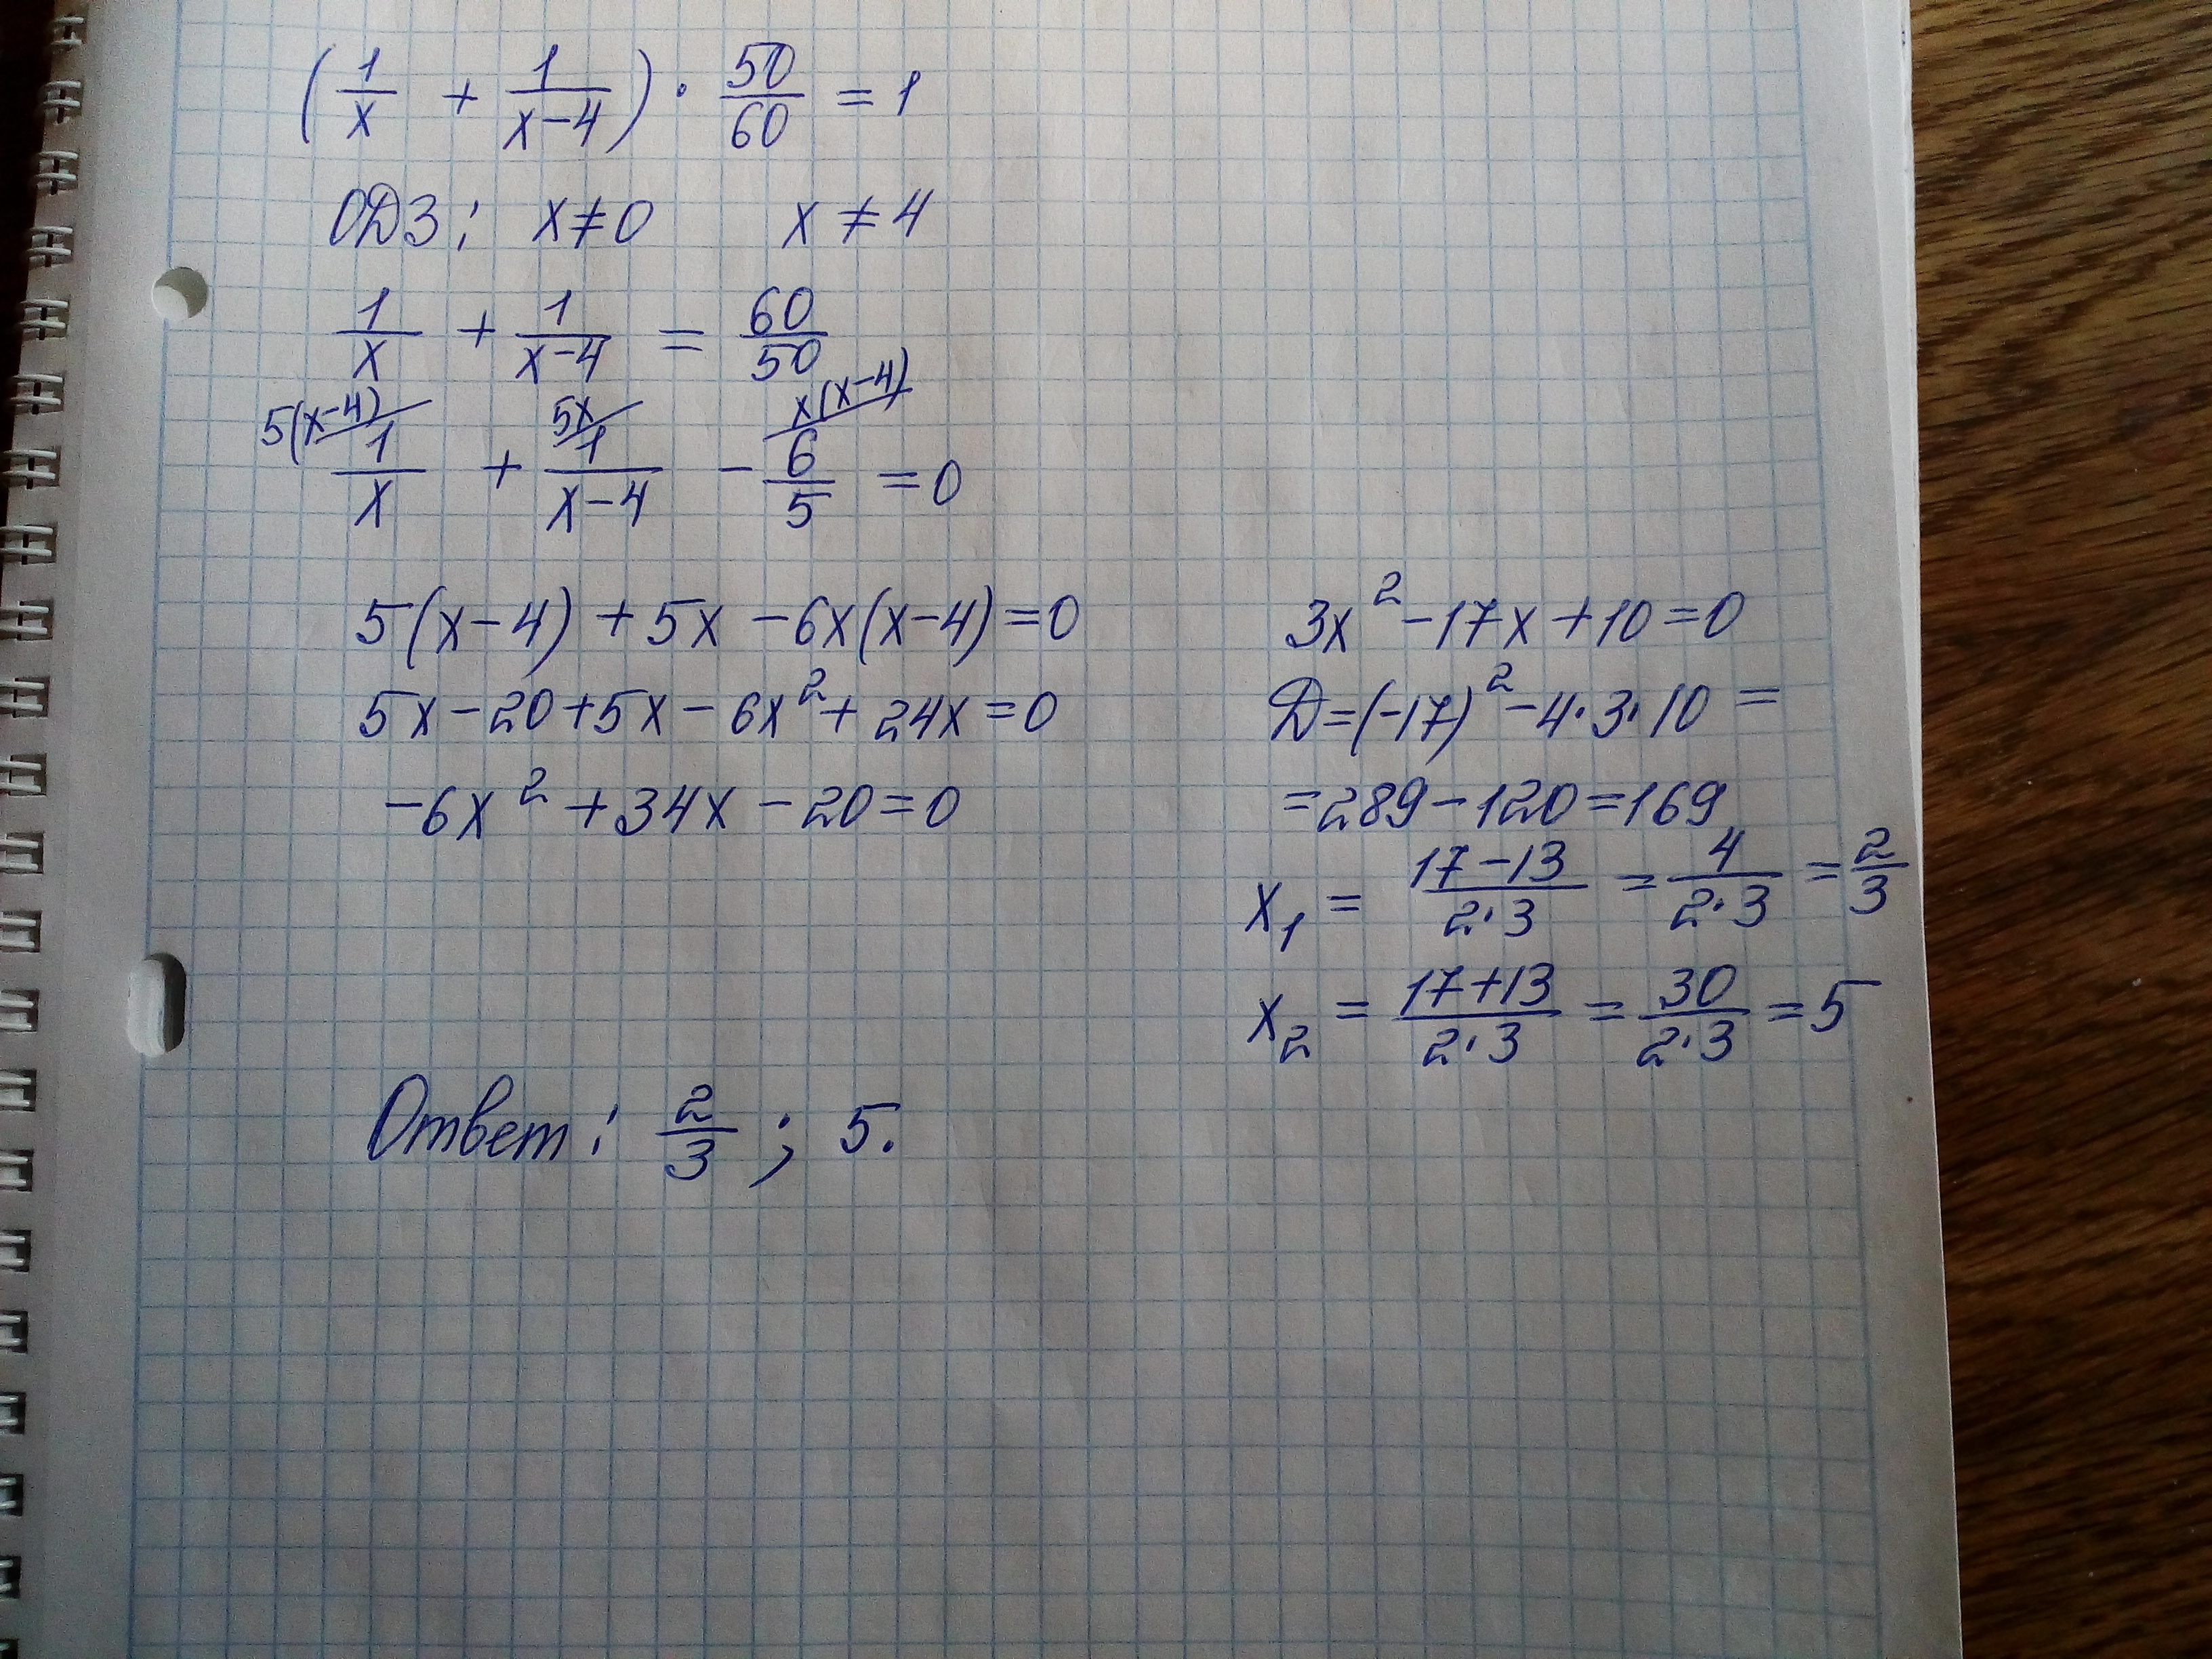 (1/x + 1/(x-4)) · 50/60 = 1
ОДЗ: x≠0 x≠4
1/x + 1/(x-4) = 60/50
5(x-4) 5x x(x-4)
1/x + 1/(x-4) - 6/5 = 0
5(x-4) + 5x - 6x(x-4) = 0
5x - 20 + 5x - 6x² + 24x = 0
-6x² + 34x - 20 = 0
3x² - 17x + 10 = 0
D = (-17)² - 4·3·10 =
= 289 - 120 = 169
x₁ = (17-13)/(2·3) = 4/(2·3) = 2/3
x₂ = (17+13)/(2·3) = 30/(2·3) = 5
Ответ: 2/3; 5.